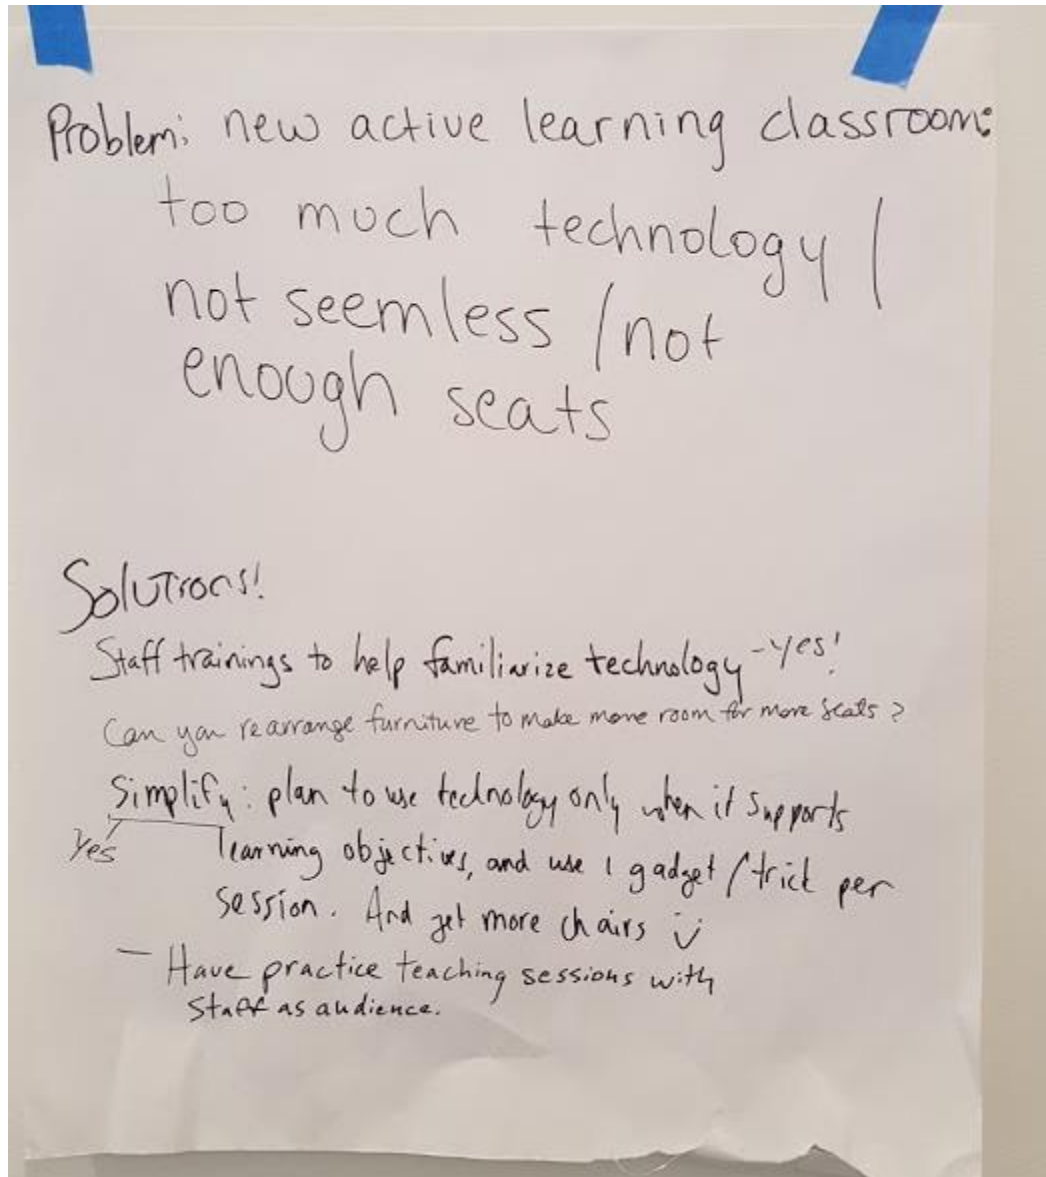 Problem: new active learning classroom:
too much technology /
not seemless / not
enough seats
Solutions!
Staff trainings to help familiarize technology - yes!
Can you rearrange furniture to make more room for more seats?
Simplify: plan to use technology only when it supports
Yes learning objectives, and use 1 gadget / trick per
session. And get more chairs :)
- Have practice teaching sessions with
staff as audience.